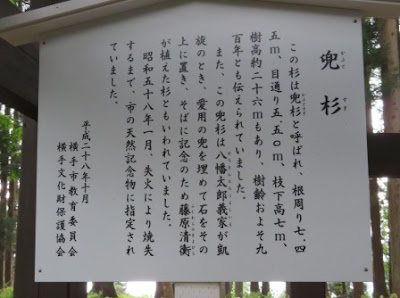 兜杉
かぶと すぎ
この杉は兜杉と呼ばれ、根周り七.四
五m、目通り五.五〇m、枝下高七m、
樹高約二十六mもあり、樹齢およそ九
百年とも伝えられていました。
また、この兜杉は八幡太郎義家が凱
旋のとき、愛用の兜を埋めて石をその
上に置き、そばに記念のため藤原清衡
が植えた杉ともいわれていました。
昭和五十八年一月、失火により焼失
するまで、市の天然記念物に指定され
ていました。
平成二十八年十月
横手市教育委員会
横手文化財保護協会